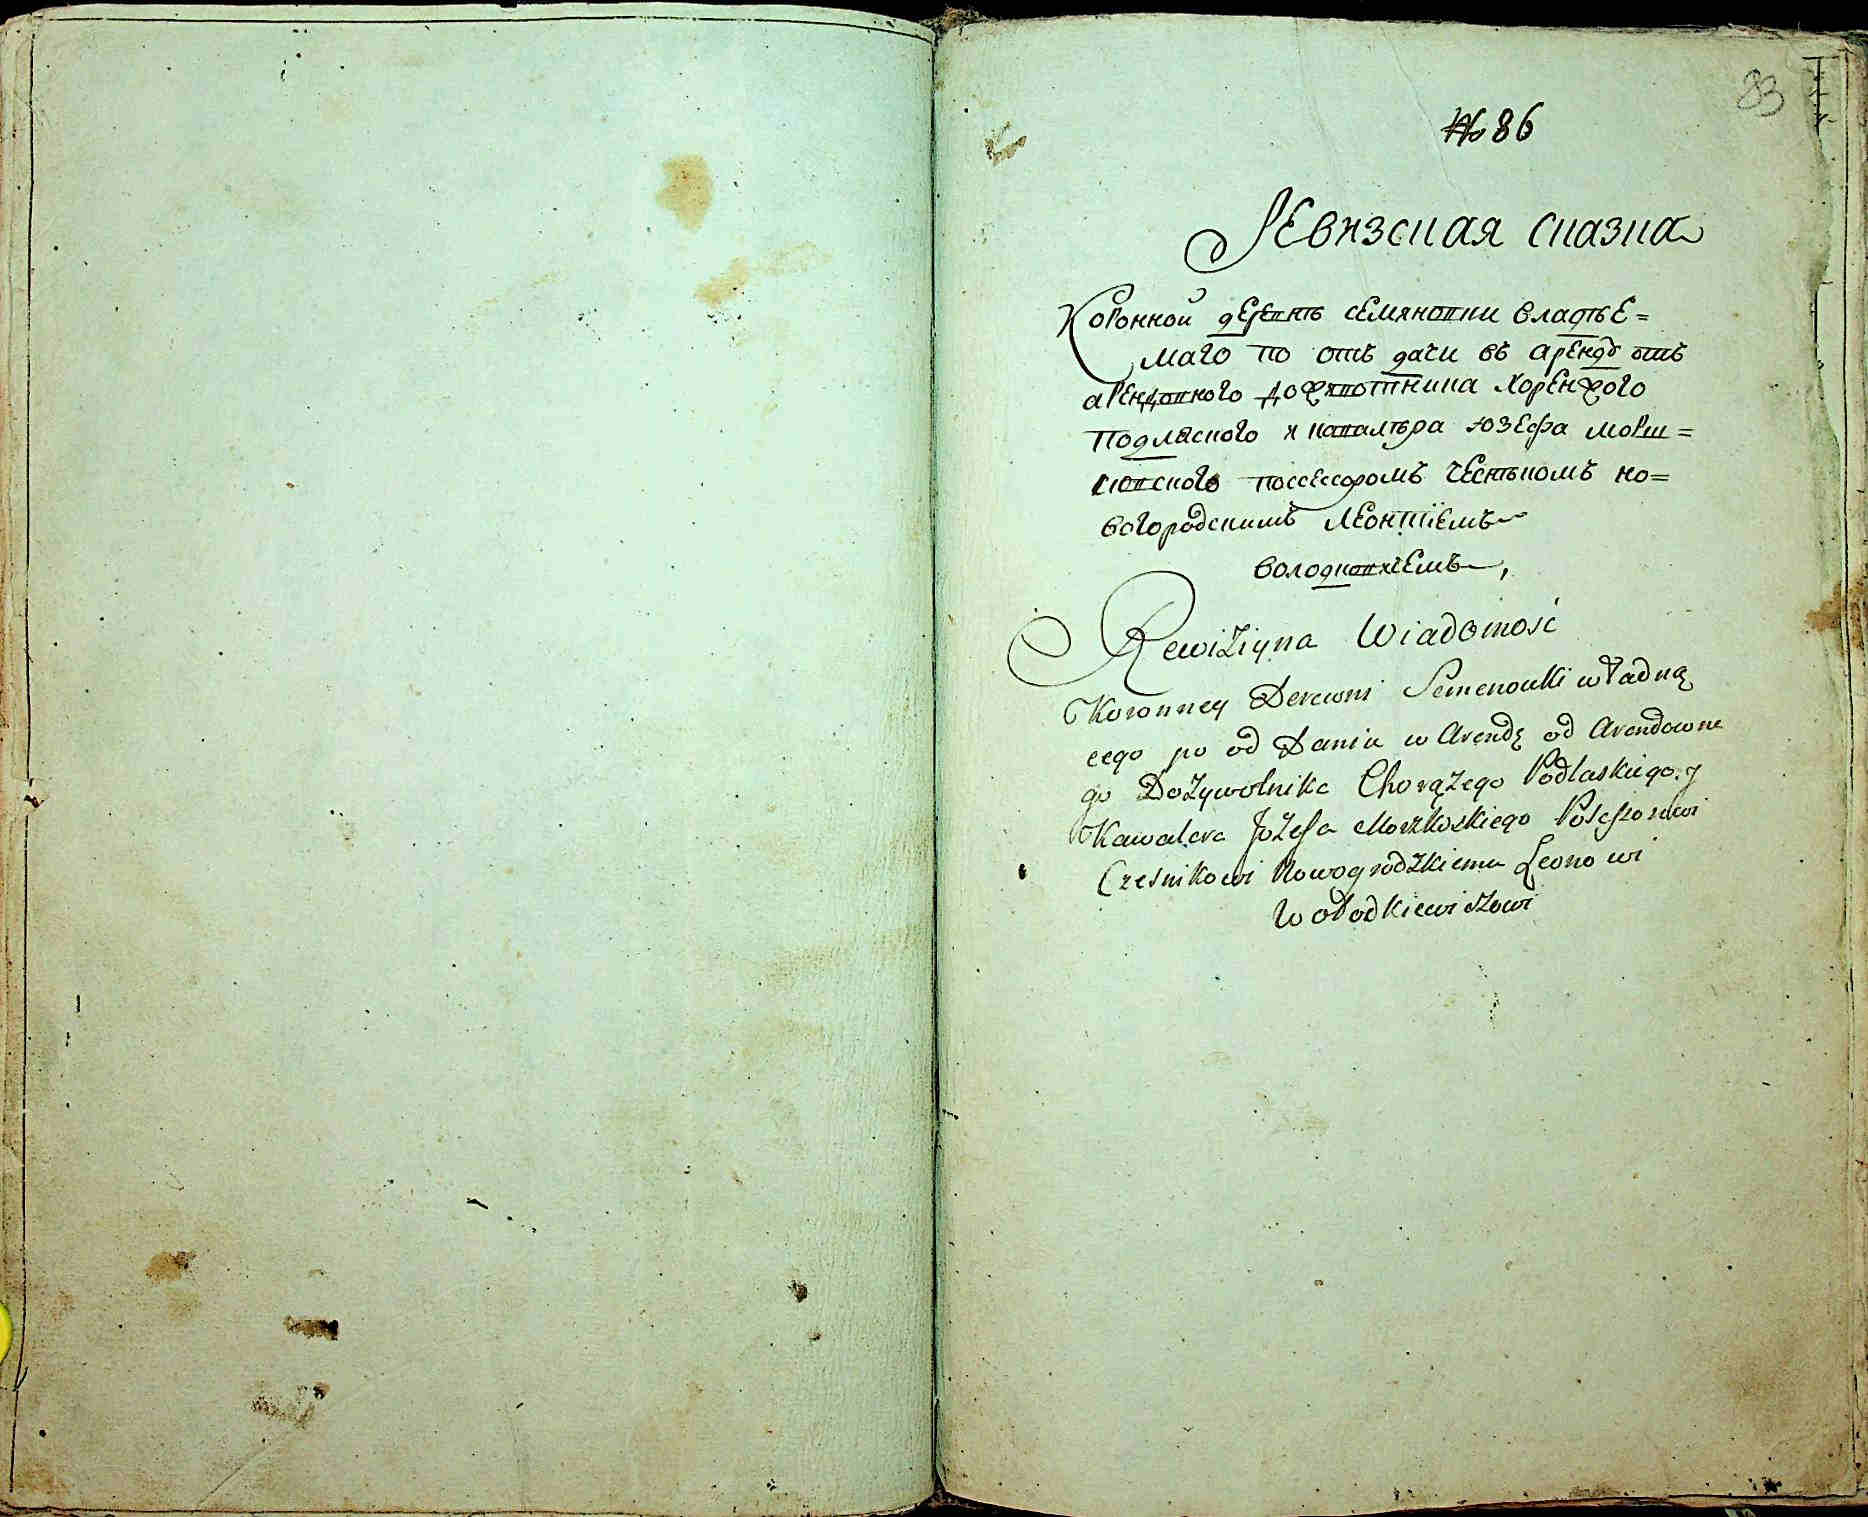 83
№ 86
Ревизская сказка
Коронной деревнѣ Семяновки владѣе=
маго по отъ дачи въ аренду отъ
арендовного дожывотника хоренжого
Подляского и кавалѣра Юзефа Морш=
ковского поссессоромъ чеснѣкомъ но=
вогородскимъ Леонтіемъ
володковичемъ,
Rewiziyna Wiadomosć
Koronney Derewni Semenowki władną
cego po od Daniu w Arendę od Arendowne
go Dożywotnika Chorążego Podlaskiego y
Kawalera Jożefa Morzkoskiego Posessorowi
Czesnikowi Nowogrodzkiemu Leonowi
Wołodkiewiczowi